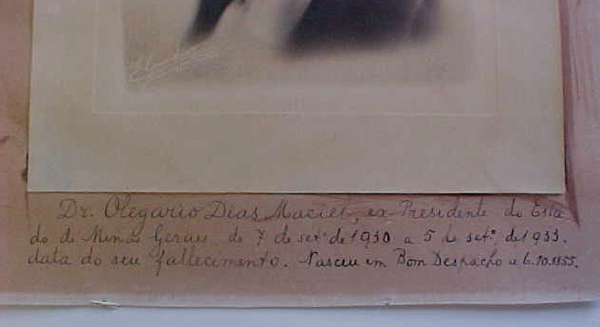 Dr. Olegario Dias Maciel, ex-Presidente do Esta
do de Minas Geraes de 7 de setº de 1930 a 5 de setº de 1933.
data do seu fallecimento. Nasceu em Bom Despacho a 6.10.1855.